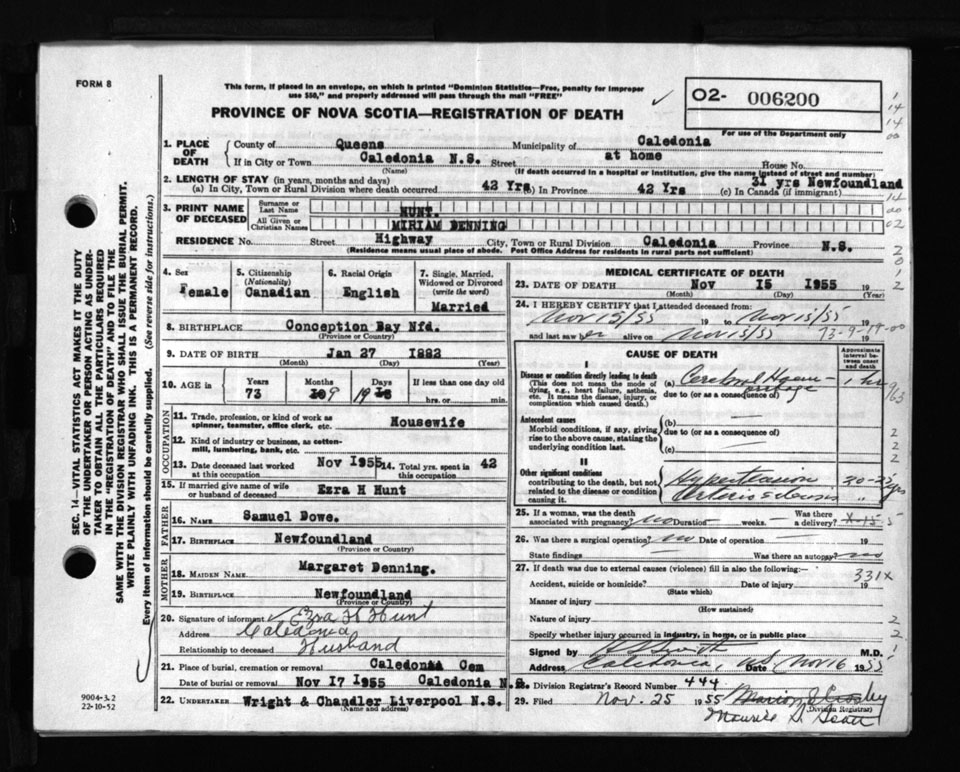 FORM 8
This form, if placed in an envelope, on which is printed "Dominion Statistics—Free, penalty for improper
use $50," and properly addressed will pass through the mail "FREE"
PROVINCE OF NOVA SCOTIA—REGISTRATION OF DEATH
02- 006200
For use of the Department only
1. PLACE OF DEATH County of Queens Municipality of Caledonia
If in City or Town Caledonia N.S. Street at home House No.
(Name) (If death occurred in a hospital or institution, give the name instead of street and number)
2. LENGTH OF STAY (in years, months and days)
(a) In City, Town or Rural Division where death occurred 42 Yrs (b) In Province 42 Yrs (c) In Canada (if immigrant) 31 yrs Newfoundland
3. PRINT NAME OF DECEASED Surname or Last Name HUNT.
All Given or Christian Names MIRIAM DENNING
RESIDENCE No. Street Highway City, Town or Rural Division Caledonia Province N.S.
(Residence means usual place of abode. Post Office Address for residents in rural parts not sufficient)
4. Sex Female
5. Citizenship (Nationality) Canadian
6. Racial Origin English
7. Single, Married, Widowed or Divorced (write the word) Married
8. BIRTHPLACE Conception Bay Nfd.
(Province or Country)
9. DATE OF BIRTH Jan 27 1882
(Month) (Day) (Year)
10. AGE in Years Months Days If less than one day old
73 9 19 hrs. or min.
OCCUPATION
11. Trade, profession, or kind of work as spinner, teamster, office clerk, etc. Housewife
12. Kind of industry or business, as cotton-mill, lumbering, bank, etc.
13. Date deceased last worked at this occupation Nov 1955 14. Total yrs. spent in this occupation 42
15. If married give name of wife or husband of deceased Ezra H Hunt
FATHER
16. NAME Samuel Dowe.
17. BIRTHPLACE Newfoundland
(Province or Country)
MOTHER
18. MAIDEN NAME Margaret Denning.
19. BIRTHPLACE Newfoundland
(Province or Country)
20. Signature of informant Ezra H Hunt
Address Caledonia
Relationship to deceased Husband
21. Place of burial, cremation or removal Caledonia Cem
Date of burial or removal Nov 17 1955 Caledonia N.S.
22. UNDERTAKER Wright & Chandler Liverpool N.S.
(Name and address)
MEDICAL CERTIFICATE OF DEATH
23. DATE OF DEATH Nov 15 1955 19
(Month) (Day) (Year)
24. I HEREBY CERTIFY that I attended deceased from:
Nov 15/55 19 to Nov 15/55 19
and last saw her alive on Nov 15/55 19
73-9-19-00
CAUSE OF DEATH
Approximate interval between onset and death
I
Disease or condition directly leading to death
(This does not mean the mode of dying, e.g., heart failure, asthenia, etc. It means the disease, injury, or complication which caused death.)
(a) Cerebral Haemorrhage 1 hr
due to (or as a consequence of)
Antecedent causes
Morbid conditions, if any, giving rise to the above cause, stating the underlying condition last.
(b)
due to (or as a consequence of)
(c)
II
Other significant conditions
contributing to the death, but not related to the disease or condition causing it.
Hypertension 20-25 yrs
Arteriosclerosis "
25. If a woman, was the death associated with pregnancy? no Duration — weeks. — Was there a delivery?
26. Was there a surgical operation? no Date of operation — 19
State findings — Was there an autopsy? no
27. If death was due to external causes (violence) fill in also the following:— 331X
Accident, suicide or homicide? Date of injury 19
(State which)
Manner of injury
(How sustained)
Nature of injury
Specify whether injury occurred in industry, in home, or in public place
Signed by H S Smith M.D.
Address Caledonia, NS Date Nov 16 1955
28. Division Registrar's Record Number 444
29. Filed Nov. 25 1955
Maurice
(Division Registrar)
SEC. 14—VITAL STATISTICS ACT MAKES IT THE DUTY
OF THE UNDERTAKER OR PERSON ACTING AS UNDER-
TAKER TO OBTAIN ALL THE PARTICULARS REQUIRED
IN THE "REGISTRATION OF DEATH" AND TO FILE THE
SAME WITH THE DIVISION REGISTRAR WHO SHALL ISSUE THE BURIAL PERMIT.
WRITE PLAINLY WITH UNFADING INK. THIS IS A PERMANENT RECORD.
Every item of information should be carefully supplied. (See reverse side for instructions.)
9004-3.2
22-10-52